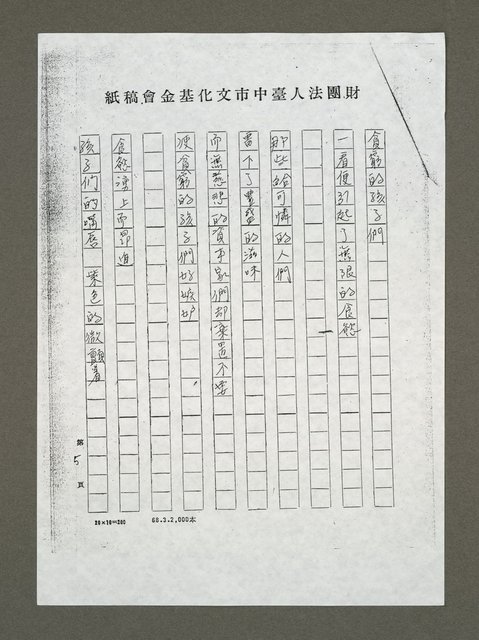 財團法人臺中市文化基金會稿紙
貪窮的孩子們
一看便引起了無限的食慾
那些給可憐的人們
留下了豐盛的滋味
而無慈悲的資本家們却棄置不要
使貪窮的孩子們好嫉妒
食慾湧上而昂進
孩子們的嘴唇 紫色的微顫著
第5頁
20×10=200
68.3.2,000本